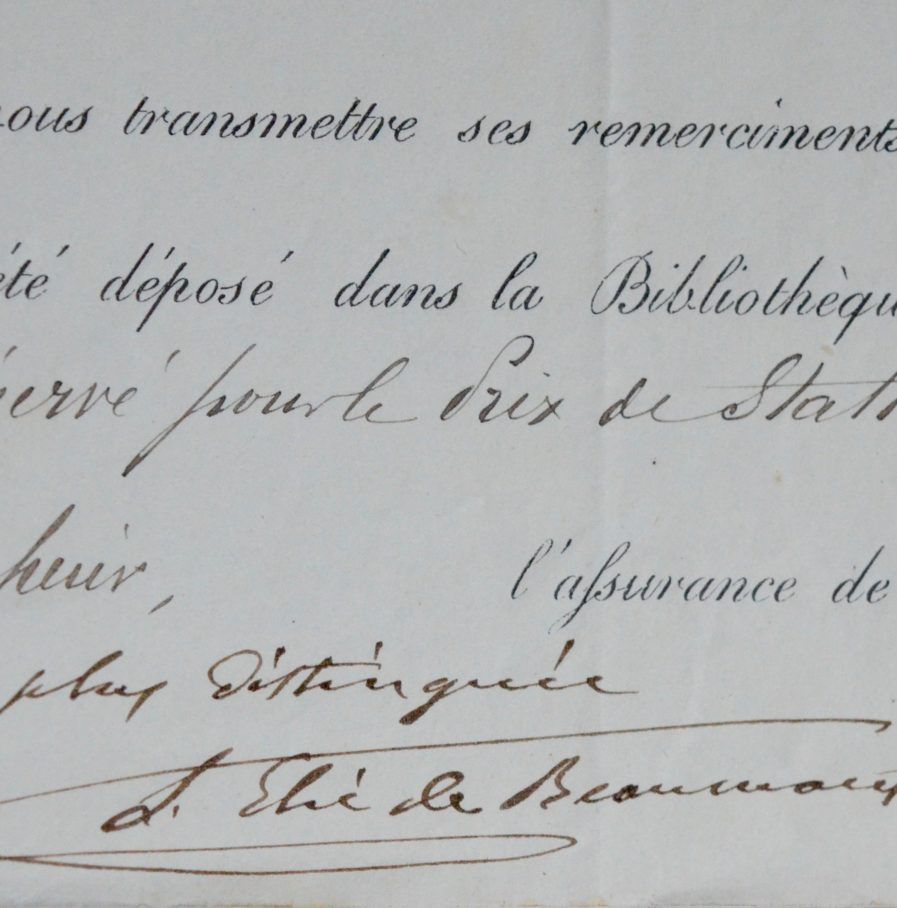 nous transmettre ses remerciments
été déposé dans la Bibliothèqu
servé pour le Prix de Stati
l'assurance de
plus distinguée
L. Elie de Beaumont